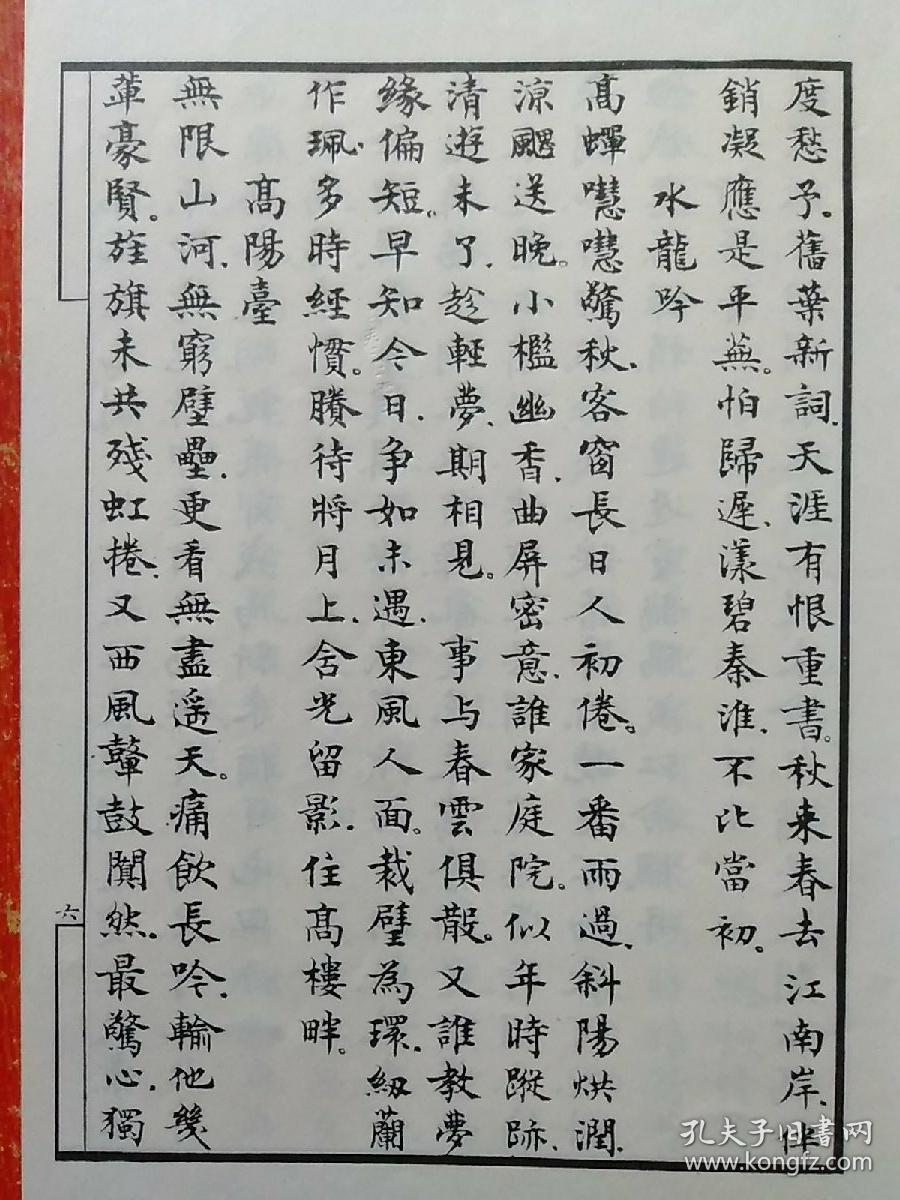 度愁予。舊葉新詞、天涯有恨重書。秋来春去江南岸、伴
銷凝應是平蕪。怕歸遲、漾碧秦淮、不比當初。
水龍吟
高蟬嘒嘒驚秋、客窗長日人初倦。一番雨過、斜陽烘潤、
涼颸送晚。小檻幽香、曲屏密意、誰家庭院。似年時蹤跡、
清遊未了、趁輕夢、期相見。 事与春雲俱散。又誰教夢
緣偏短。早知今日、争如未遇、東風人面。裁璧為環、紉蘭
作珮、多時經慣。賸待將月上、含光留影、住高樓畔。
高陽臺
無限山河、無窮壁壘、更看無盡遥天。痛飲長吟、輸他幾
輩豪賢。旌旗未共残虹捲、又西風鼙鼓闐然。最驚心、獨
六
孔夫子旧书网
www.kongfz.com